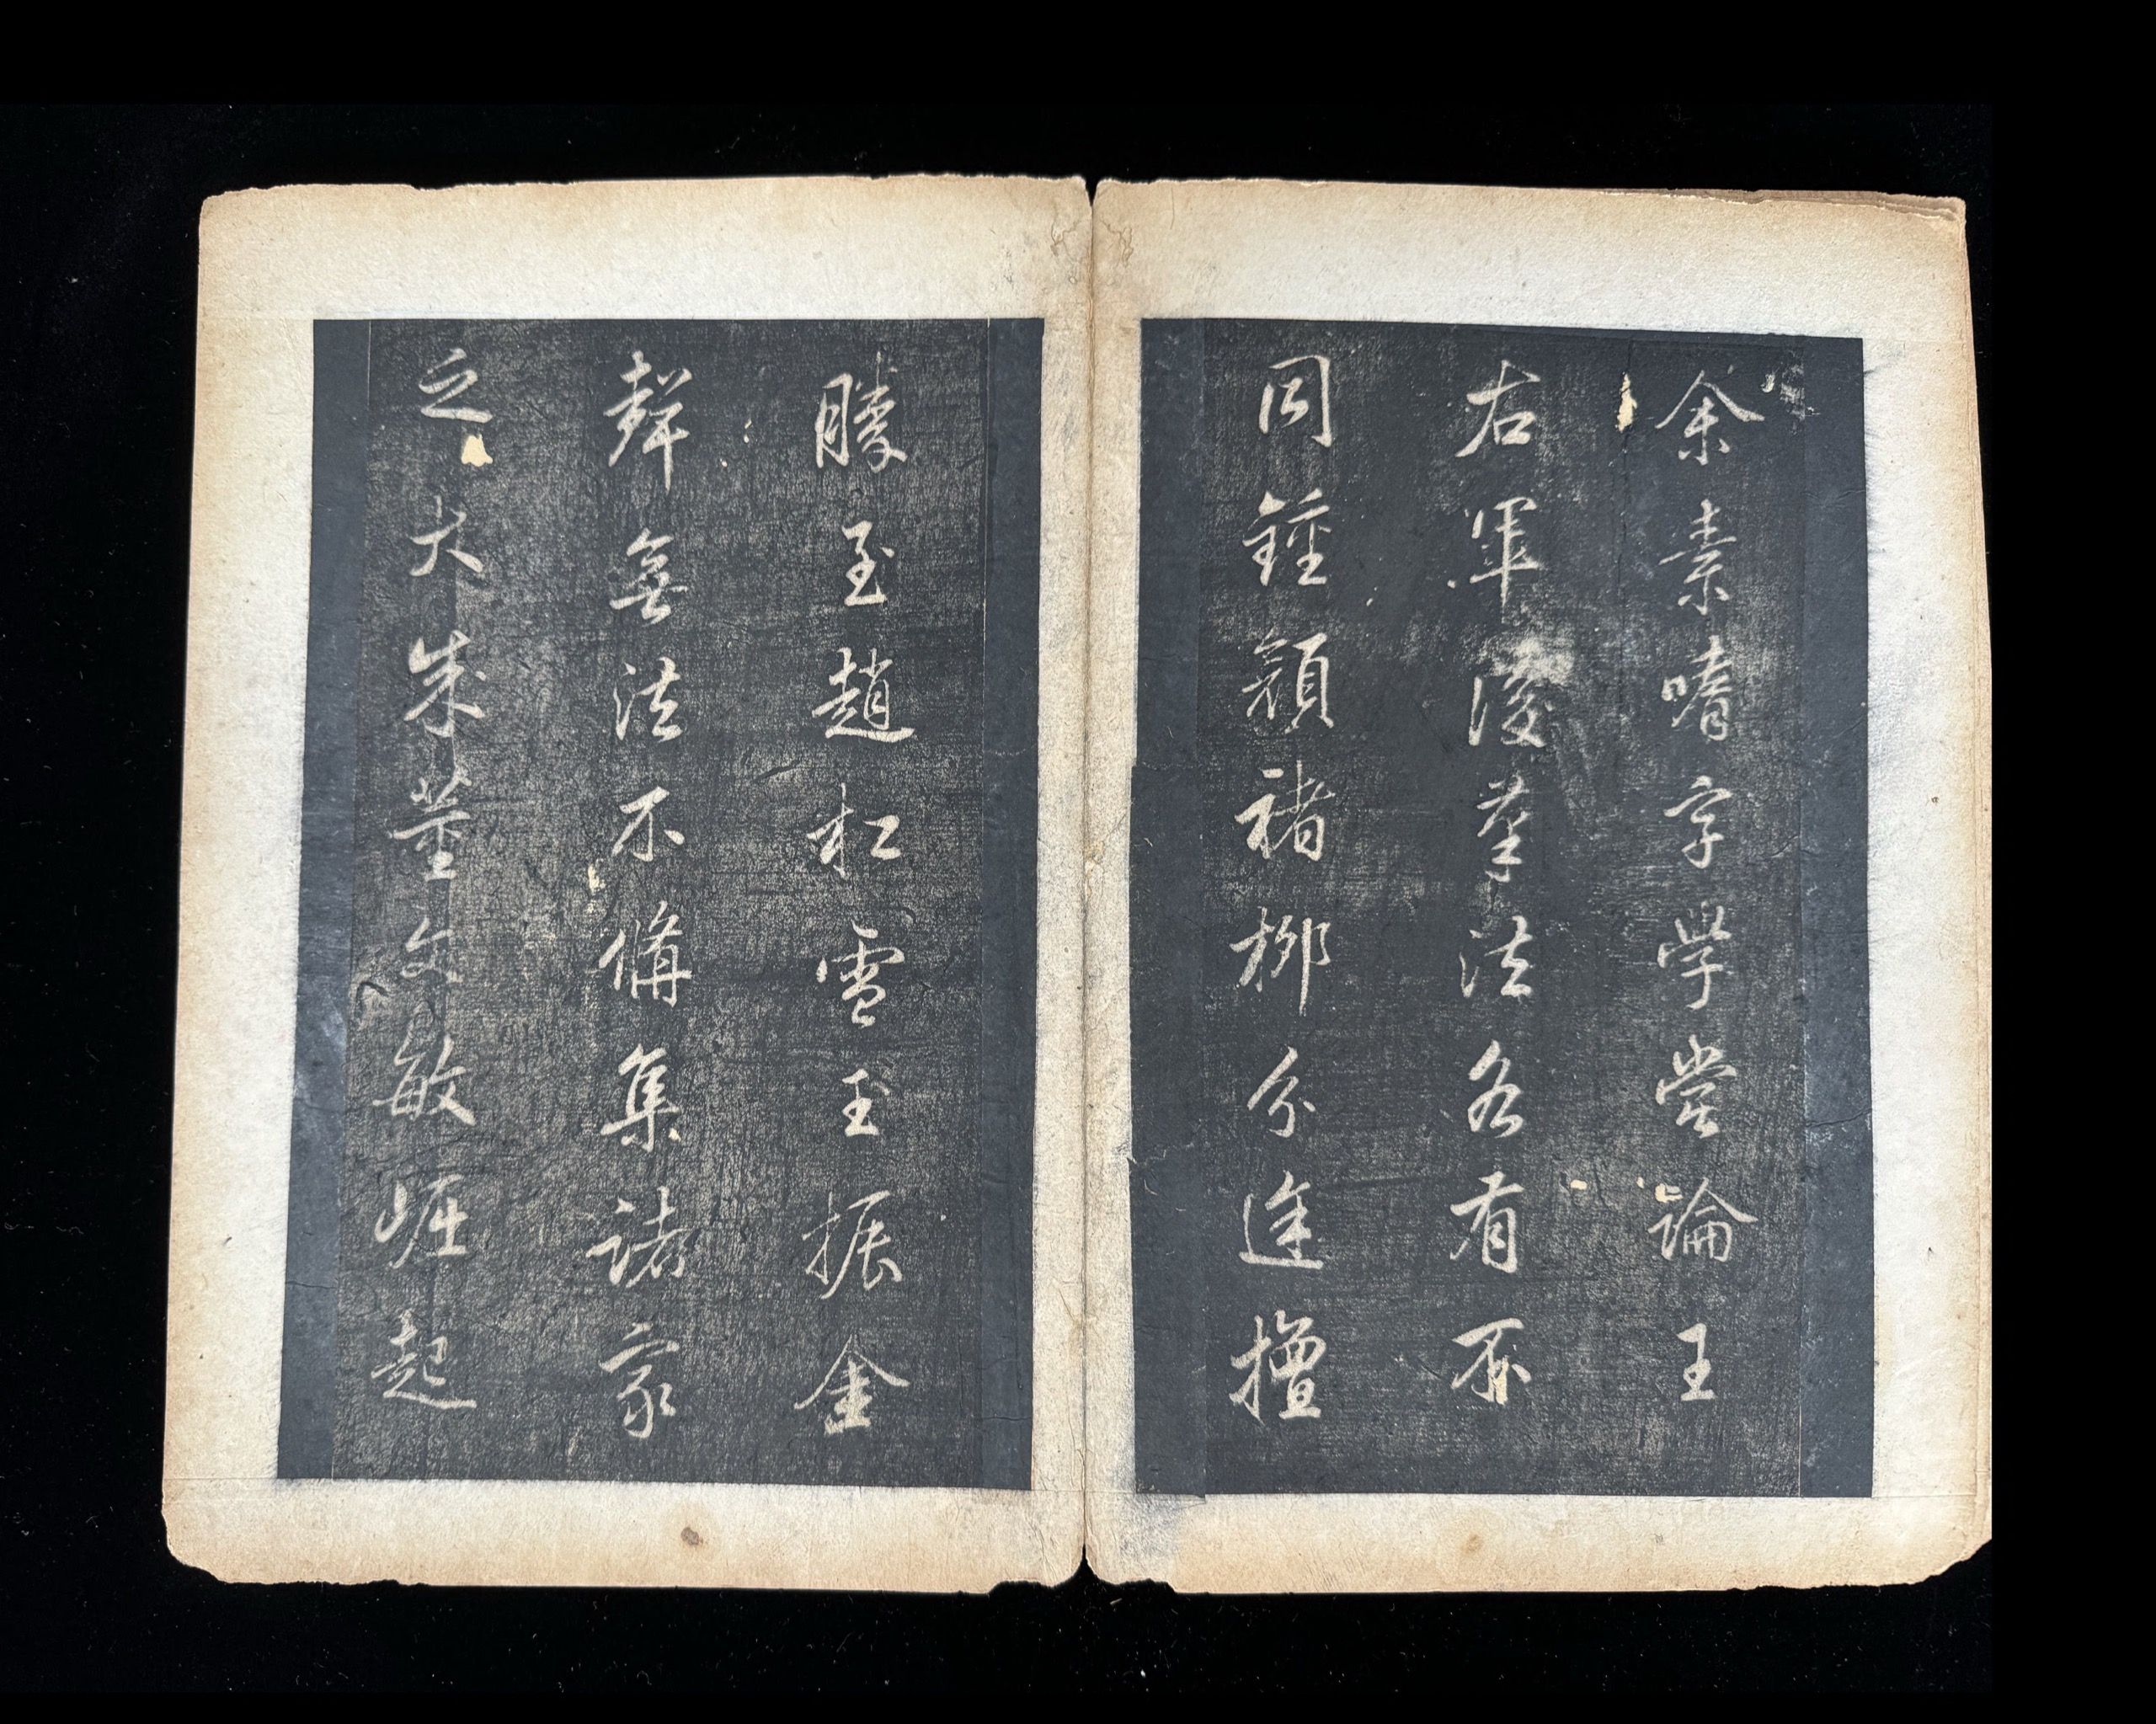 余素嗜字學嘗論王
右軍後筆法各有不
同鍾顏褚柳分途擅
勝至趙松雪玉振金
聲無法不備集諸家
之大成董文敏崛起